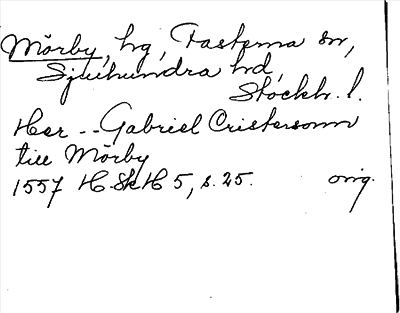 Mörby, hg, Fasterna sn,
Sjuhundra hd,
Stockh. l.
Her -- Gabriel Cristersonn
till Mörby
1557 H Sk H 5, s. 25. orig.